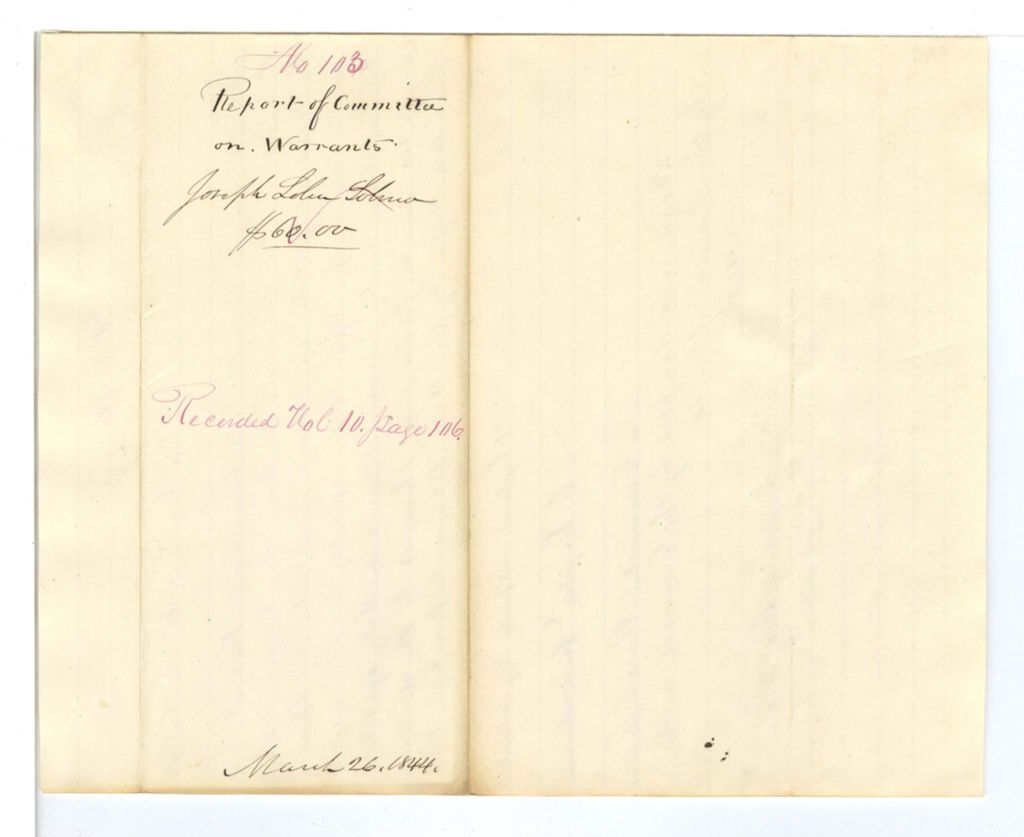 No 103
Report of Committee
on. Warrants.
Joseph
$60.00
Recorded Vol 10. page 106.
March 26. 1844.